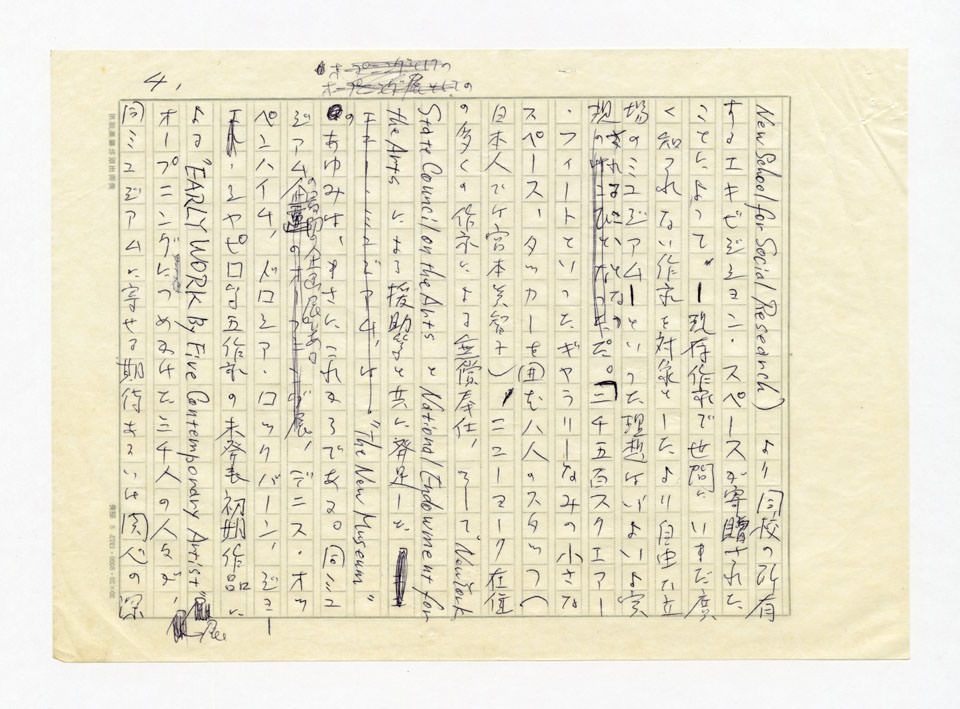 4.
New School for Social Research) より同校の所有
するエキビジション・スペースが寄贈された
ことによって、現存作家で世間にいまだ広
く知られない作家を対象としたより自由な立
場のミュジアムーといった理想はいよいよ実
現されることとなった。二千五百スクエアー
・フィートといったギャラリーなみの小さな
スペース、タッカーを囲む八人のスタッフ(
日本人で宮本美智子) ニューヨーク在住
の多くの作家による無償奉仕、そして"New York
State Council on the Arts と National Endowment for
the Arts による援助等と共に発足した
"The New Museum"
のあゆみは、まさにこれからである。同ミュ
ジアム企画のオープニング展、デニス・オッ
ペンハイム、ドロシア・ロックバーン、ジョ
エル・シャピロら五作家の未発表初期作品に
よる "EARLY WORK By Five Contemporary Artist" 展
オープニングにつめかけた三千人の人々が、
同ミュジアムに寄せる期待あるいは関心の深